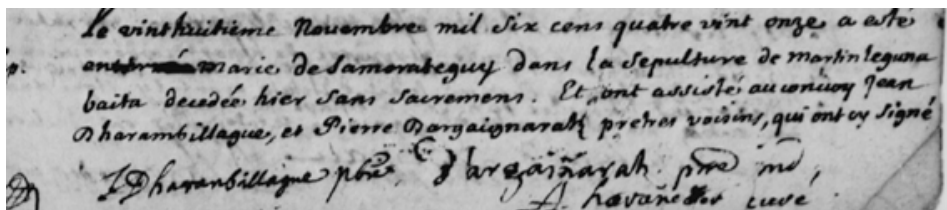 Le vinthuitieme Novembre mil six cens quatre vint onze a esté
enterrée marie de Samorateguy dans la sepulture de martin leguna
baita decedée hier sans sacremens. Et, ont assisté au convoy Jean
Dharambillague, et Pierre Dargaignaratz pretres voisins, qui ont cy signé
JDharanbillague pbre. Dargaiñarats pbre
curé